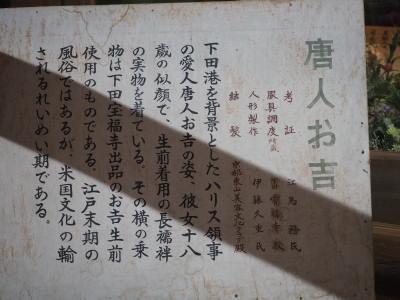 唐人お吉
考証 江馬務氏
服具調度
人形製作 伊藤久重氏
結髪 京都東山美容文化クラブ殿
下田港を背景としたハリス領事
の愛人唐人お吉の姿、彼女十八
歳の似顔で、生前着用の長襦袢
の実物を着ている。その横の乗
物は下田宝福寺出品のお吉生前
使用のものである。江戸末期の
風俗ではあるが、米国文化の輸
されるれいめい期である。